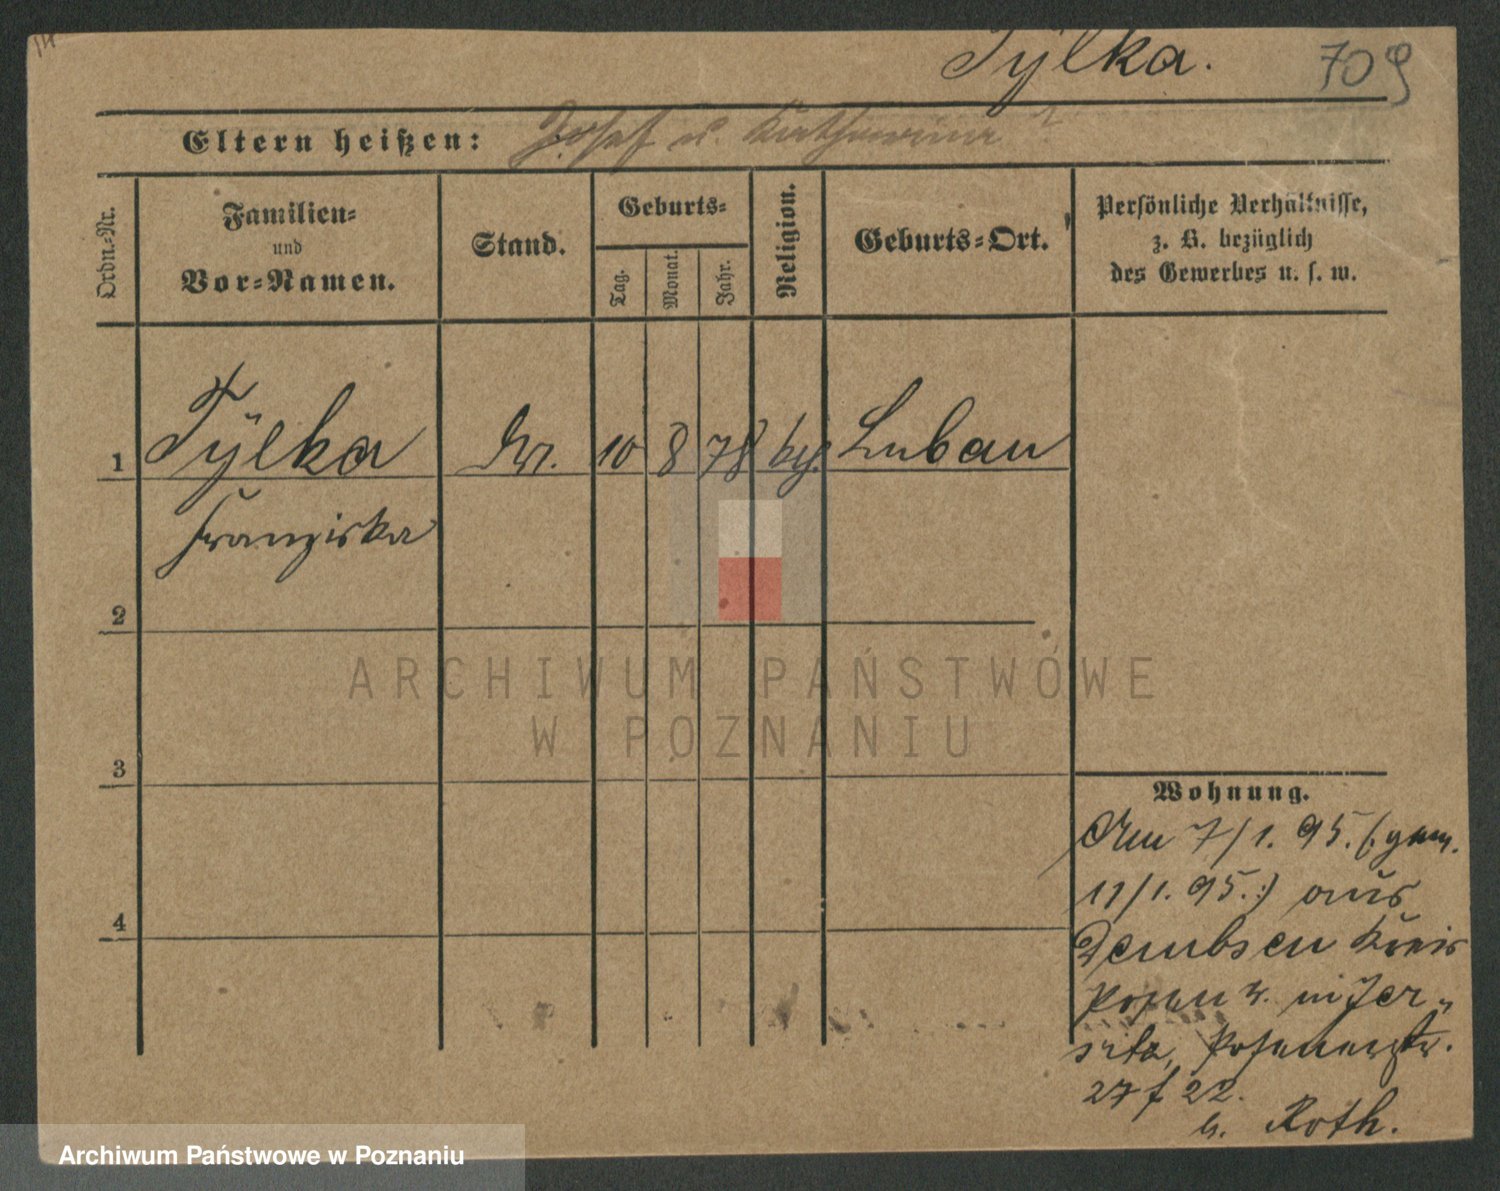 Tÿlka.
709
Eltern heißen: Josef u. Katharina ?
Ordn.-Nr.
Familien-
und
Vor-Namen.
Stand.
Geburts-
Tag.
Monat.
Jahr.
Religion.
Geburts-Ort.
Persönliche Verhältnisse,
z. B. bezüglich
des Gewerbes u. s. w.
1 Tÿlka 10 8 78 Luban
Franziska
2
3
4
Wohnung.
Am 7/1. 95. (: gem.
11/1. 95. :) aus
Dembsen Kreis
Posen W. in Jer-
sitz, Posenerstr.
27 f 22.
b. Roth.
ARCHIWUM PAŃSTWOWE
W POZNANIU
Archiwum Państwowe w Poznaniu